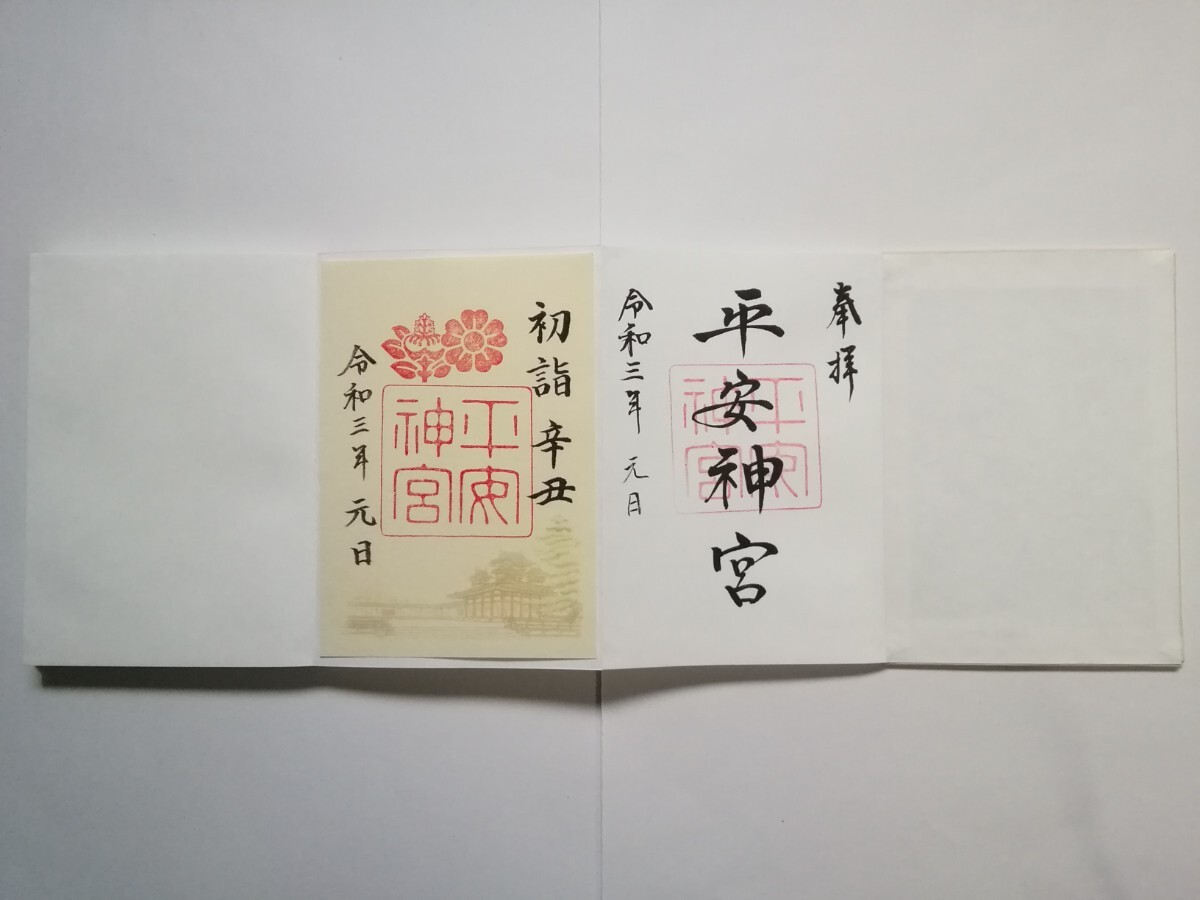 奉拝
平安神宮
平安神宮
令和三年 元日
初詣 辛丑
平安神宮
令和三年 元日